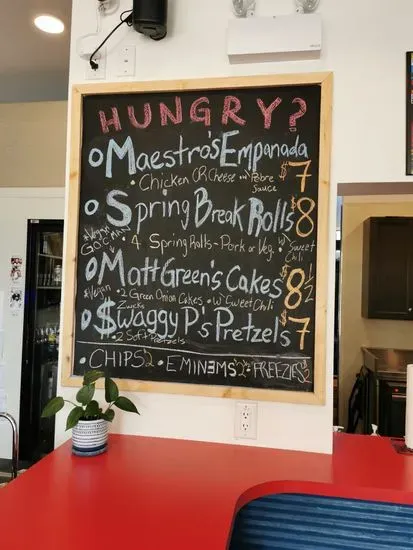 HUNGRY?
Maestro's Empanada $7
• Chicken OR Cheese w/ Pebre Sauce
Spring Break Rolls $8
*Vegan
• 4 Spring Rolls - Pork or Veg. w/ Sweet Chili
Matt Green's Cakes $8
*Vegan • 2 Green Onion Cakes • w Sweet Chili 12
$waggy P's Pretzels $7
• 2 Soft Pretzels
• CHIPS $2 • EMINEMS $2 • FREEZIES $2